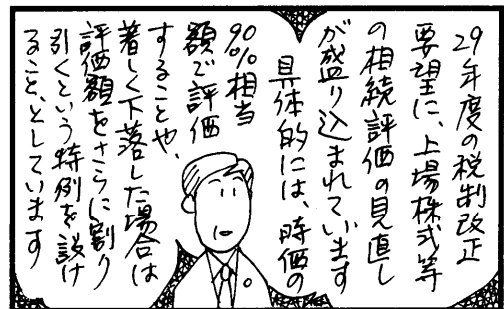 29年度の税制改正
要望に、上場株式等
の相続評価の見直し
が盛り込まれています
具体的には、時価の
90%相当
額で評価
することや、
著しく下落した場合は
評価額をさらに割り
引くという特例を設け
ること、としています